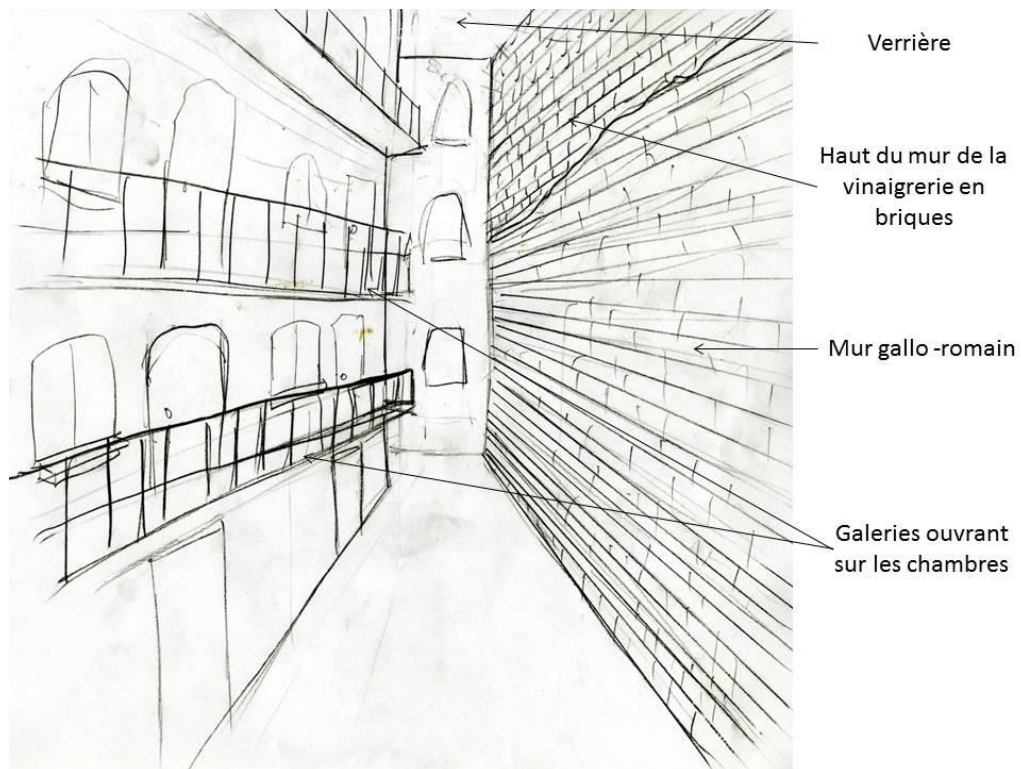 Verrière
Haut du mur de la
vinaigrerie en
briques
Mur gallo -romain
Galeries ouvrant
sur les chambres